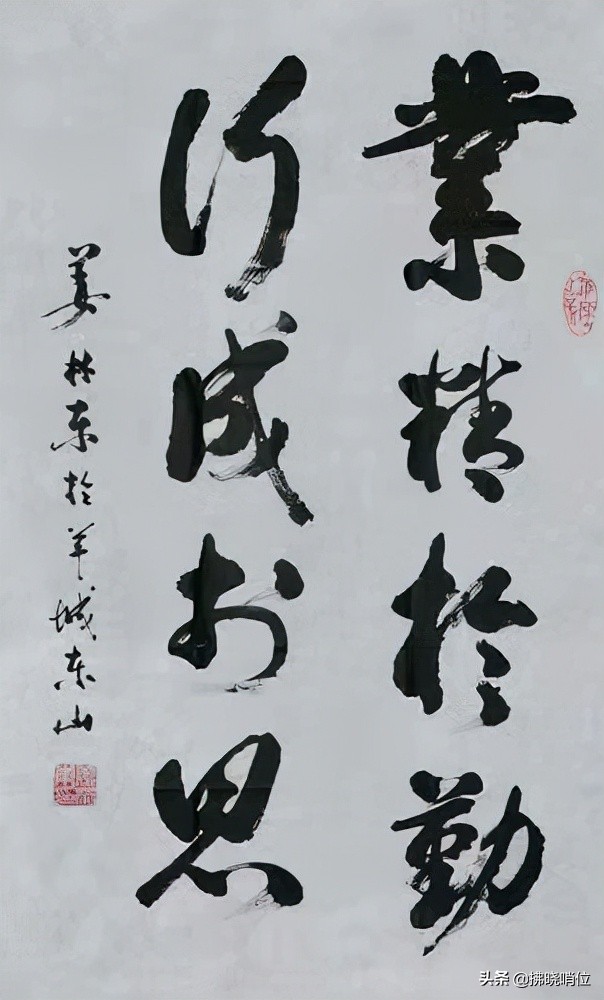 業精於勤
行成於思
姜林东於羊城东山
头条 @拂晓哨位